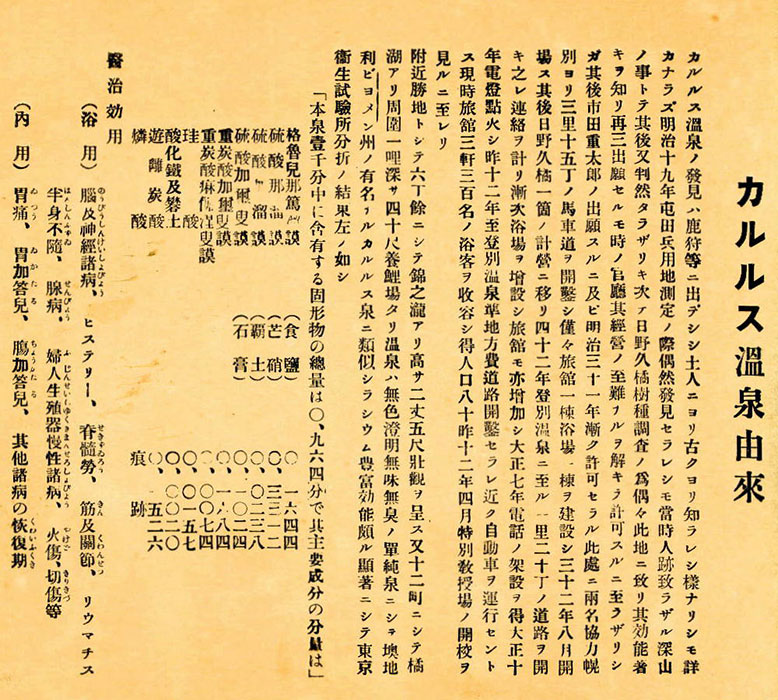 カルルス溫泉由來
カルルス溫泉ノ發見ハ鹿狩等ニ出デシシ土人ニヨリ古クヨリ知ラレシ樣ナリシモ詳
カナラズ明治十九年屯田兵用地測定ノ際偶然發見セラレシモ當時人跡致ラザル深山
ノ事トテ其後又判然タラザリキ次テ日野久橘樹種調査ノ爲偶々此地ニ致リ其効能著
キヲ知リ再三出願セルモ時ノ官廳其經營ノ至難ナルヲ解キテ許可スルニ至ラザリシ
ガ其後市田重太郎ノ出願スルニ及ビ明治三十一年漸ク許可セラル此處ニ兩名協力幌
別ヨリ三里十五丁ノ馬車道ヲ開鑿シ僅々旅館一棟浴場一棟ヲ建設シ三十二年八月開
場ス其後日野久橘一箇ノ計營ニ移リ四十二年登別溫泉ニ至ル一里二十丁ノ道路ヲ開
キ之レ連絡ヲ計リ漸次浴場ヲ增設シ旅館モ亦增加シ大正七年電話ノ架設ヲ得大正十
年電燈點火シ昨十二年至登別溫泉準地方費道路開鑿セラレ近ク自動車ヲ運行セント
ス現時旅館三軒三百名ノ浴客ヲ收容シ得人口八十昨十二年四月特別敎授場ノ開校ヲ
見ルニ至レリ
附近勝地トシテ六丁餘ニシテ錦之瀧アリ高サ二丈五尺壯觀ヲ呈ス又十二町ニシテ橘
湖アリ周圍一哩深サ四十尺養鯉場タリ溫泉ハ無色澄明無味無臭ノ單純泉ニシテ墺地
利ビヨメン州ノ有名ナルカルルス泉ニ類似シラシウム豐富効能頗ル顯著ニシテ東京
衞生試驗所分折ノ結果左ノ如シ
「本泉壹千分中に含有する固形物の總量は〇、九六四分で其主要成分の分量は」
格魯兒那篤〓謨 (食鹽) 〇、一六四四
硫酸那〓謨 (芒硝) 〇、三三一二
硫酸〓溜謨 (覇土) 〇、〇二三八
硫酸加爾叟謨 (石膏) 〇、一〇二四
重炭酸加爾叟謨 〇、一六八四
重炭酸痲倔涅叟謨 〇、〇〇七四
珪酸 〇、〇一五七
酸化鐵及攀土 〇、〇〇二〇
遊離炭酸 〇、一五二六
燐酸 痕跡
醫治効用
(浴用) 腦及神經諸病、ヒステリー、脊髓勞、筋及關節、リウマチス
半身不隨、腺病、婦人生殖器慢性諸病、火傷、切傷等
(內用) 胃痛、胃加答兒、膓加答兒、其他諸病の恢復期